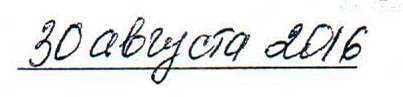 30 августа 2016